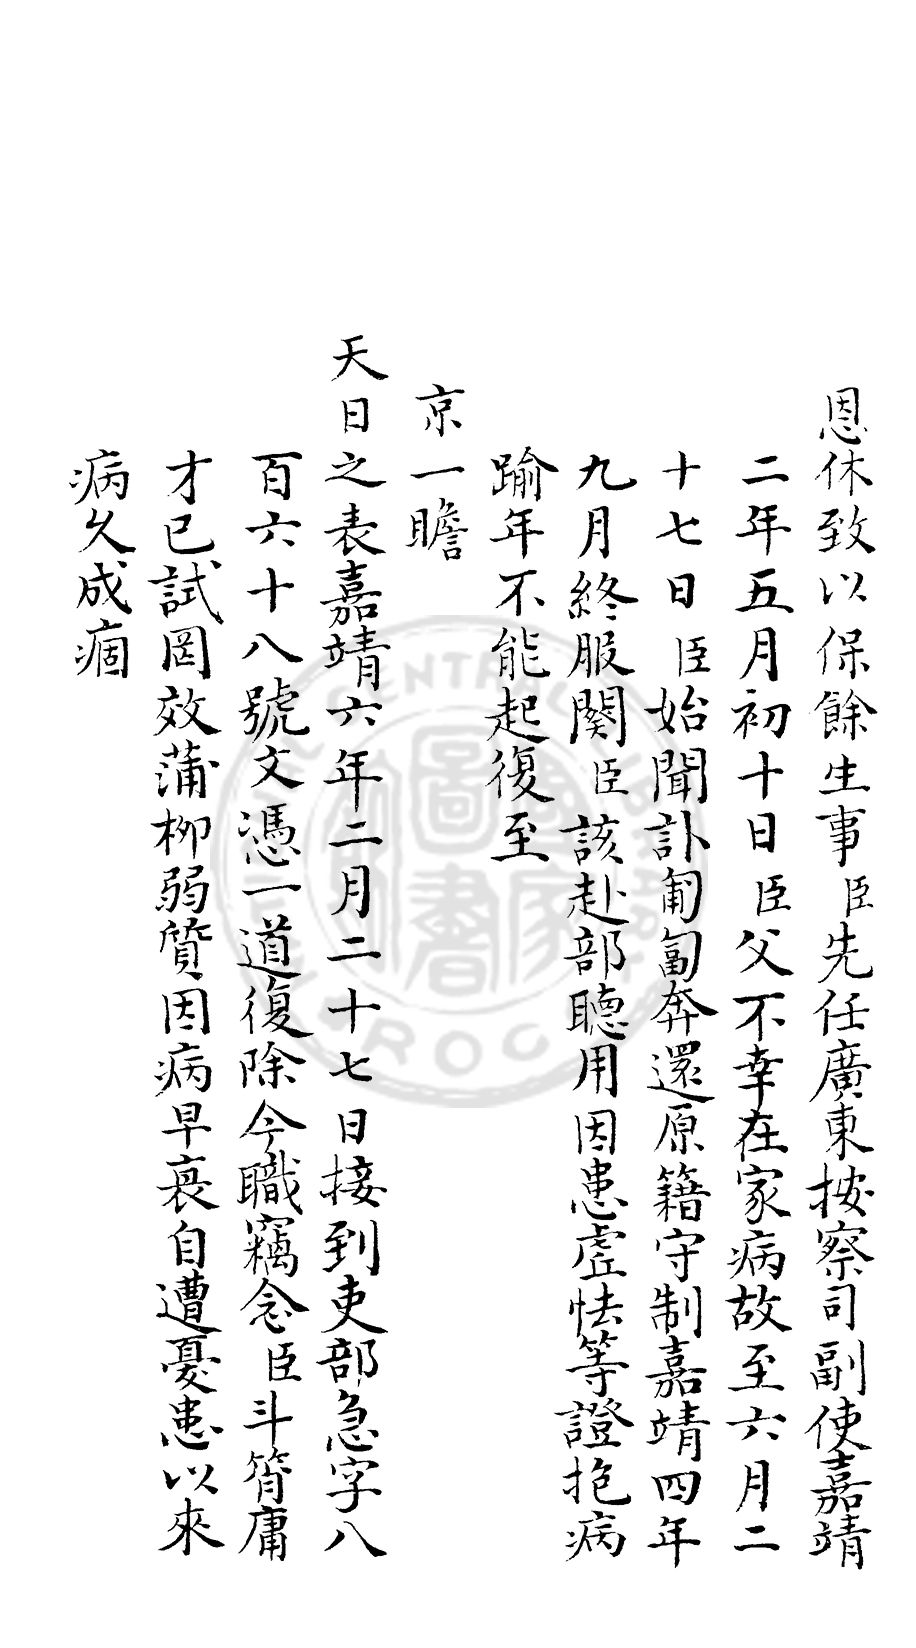 恩休致以保餘生事臣先任廣東按察司副使嘉靖
二年五月初十日臣父不幸在家病故至六月二
十七日臣始聞訃匍匐奔還原籍守制嘉靖四年
九月終服闋臣該赴部聽用因患虛怯等證抱病
踰年不能起復至
京一瞻
天日之表嘉靖六年二月二十七日接到吏部急字八
百六十八號文憑一道復除今職竊念臣斗筲庸
才已試罔效蒲柳弱質因病早衰自遭憂患以來
病久成痼
NATIONAL CENTRAL LIBRARY R.O.C.
國家圖書館